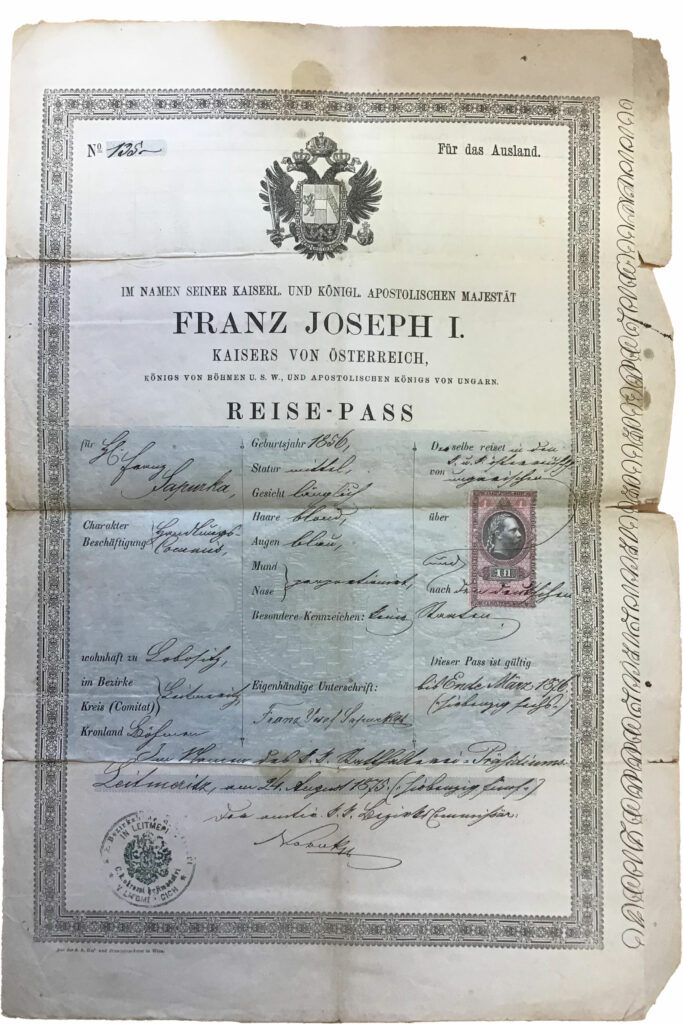 Nº 135
Für das Ausland.
IM NAMEN SEINER KAISERL. UND KÖNIGL. APOSTOLISCHEN MAJESTÄT
FRANZ JOSEPH I.
KAISERS VON ÖSTERREICH,
KÖNIGS VON BÖHMEN U. S. W., UND APOSTOLISCHEN KÖNIGS VON UNGARN.
REISE-PASS
für
H. Franz
Sapurka,
Charakter
Beschäftigung
Handlungs-
Commis,
wohnhaft zu Lobositz,
im Bezirke
Kreis (Comitat)
Leitmeritz
Kronland Böhmen
Geburtsjahr 1856,
Statur mittel,
Gesicht länglich
Haare blond,
Augen blau,
Mund
Nase
proportionirt,
Besondere Kennzeichen: keine
Eigenhändige Unterschrift:
Franz Josef Sapurka
Derselbe reiset in den
von k. k. österreichisch
ungarischen
über
1 fl
und
nach den deutschen
Staaten.
Dieser Pass ist gültig
bis Ende März 1876
(Siebenzig sechs)
Im Namen des k. k. Statthalterei-Präsidiums
Leitmeritz, am 24. August 1875 (siebenzig fünf)
Der k. k. Bezirks Commissär
IN LEITMERITZ
Aus der k. k. Hof- und Staatsdruckerei in Wien.